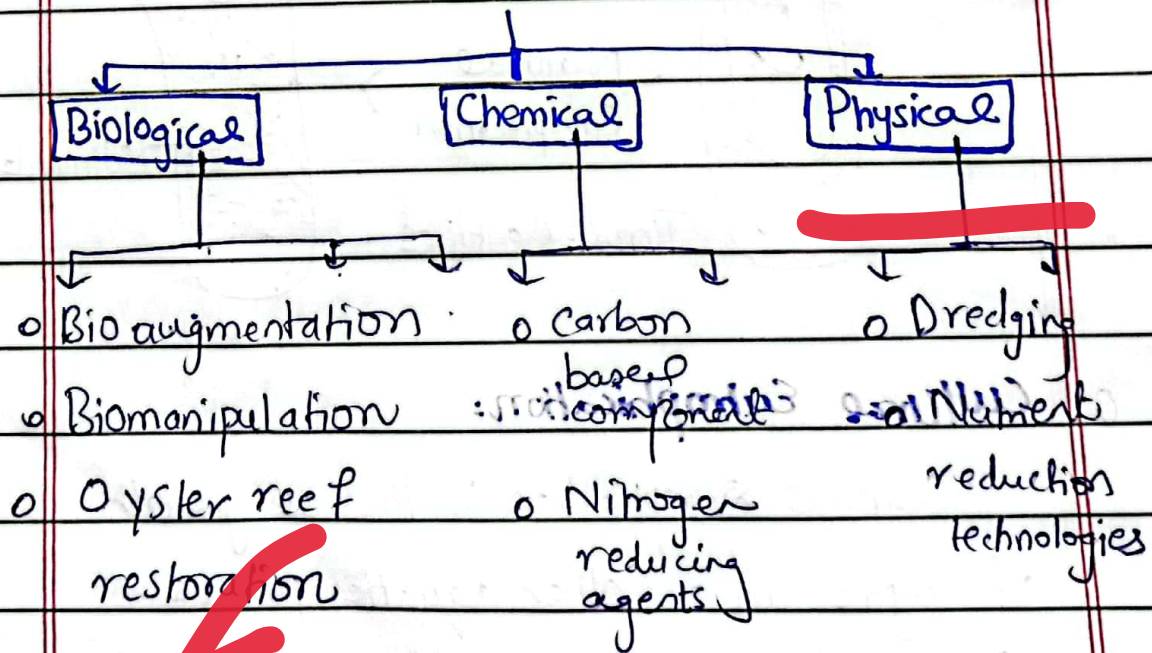 Biological Chemical Physical
Bioaugmentation
Biomanipulation
Oyster reef
restoration
Carbon
based
component
Nitrogen
reducing
agents
Dredging
Nutrient
reduction
technologies